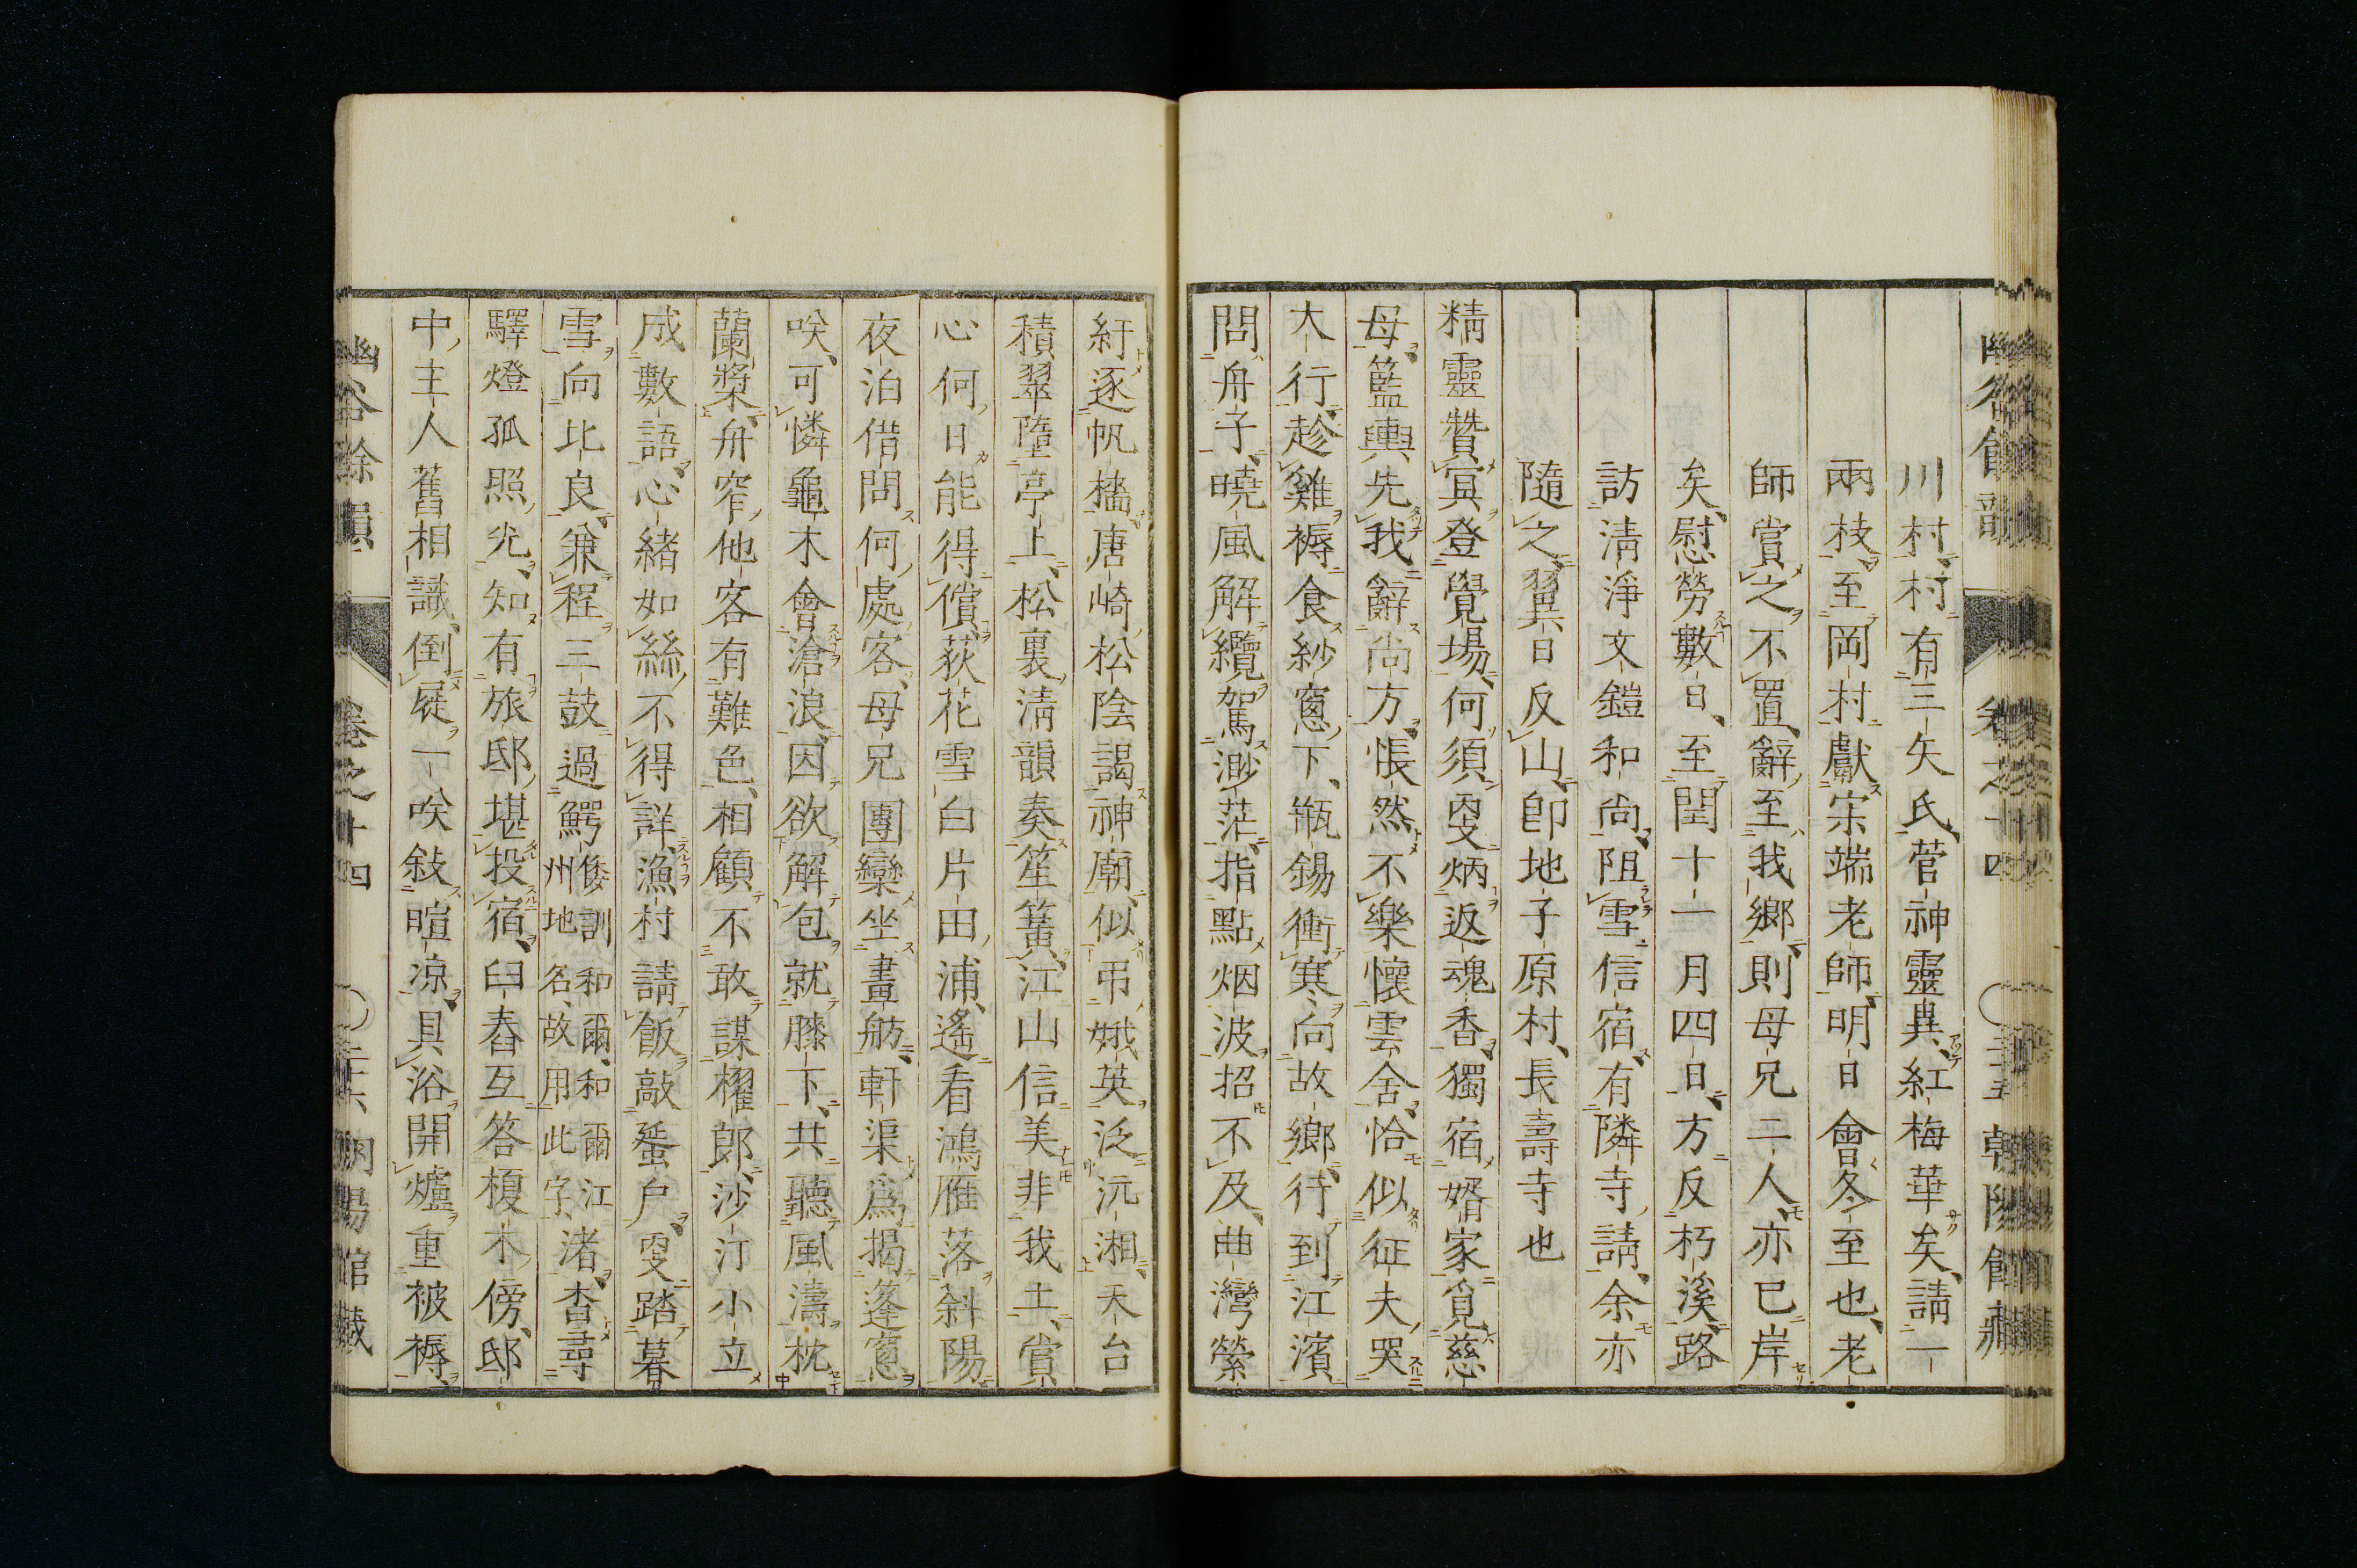 川村村有三矢氏菅神靈異紅梅華矣請一
兩枝至岡村獻宗端老師明日會冬至也老
師賞之不置辭至我鄉則母兄二人亦已岸
矣慰勞數日至閏十一月四日方反朽溪路
訪淸淨文鎧和尙阻雪信宿有隣寺請余亦
隨之翼日反山卽地子原村長壽寺也
精靈贊冥登覺場何須叟炳返魂香獨宿婿家覓慈
母籃輿先我辭尙方悵然不樂懷雲舍恰似征夫哭
大行趁雞褥食紗窻下瓶錫衝寒向故鄉行到江濱
問舟子曉風解纜駕渺茫指點烟波招不及曲灣縈
紆逐帆檣唐崎松陰謁神廟似弔娥英泛沅湘天台
積翠墮亭上松裏淸韻奏笙簧江山信美非我土賞
心何日能得償荻花雪白片田浦遙看鴻雁落斜陽
夜泊借問何處客母兄團欒坐畫舫軒渠爲揭篷窻
咲可憐龜木會滄浪因欲解包就膝下共聽風濤枕
蘭槳舟窄他客有難色相顧不敢謀櫂郎沙汀小立
成數語心緒如絲不得詳漁村請飯敲蜑户叟踏暮
雪向比良兼程三鼓過鰐倭訓和爾和爾江州地名故用此字渚杳尋
驛燈孤照光知有旅邸堪投宿臼舂互答榎木傍邸
中主人舊相識倒屣一咲敍暄凉具浴開爐重被褥
幽谷餘韻 卷之十四 〇二十六 朝陽館藏